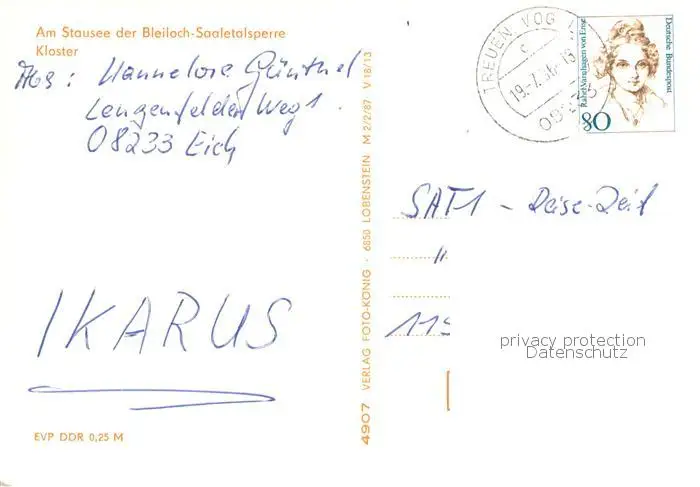 Am Stausee der Bleiloch-Saaletalsperre
Kloster
Abs: Hannelore Günthel
Lengenfelder Weg 1
08233 Eich
IKARUS
EVP DDR 0,25 M
4907 VERLAG FOTO-KÖNIG · 6850 LOBENSTEIN M 2/2/87 V 18/13
TREUEN, VOGTL
c
Rahel Varnhagen von Ense
Deutsche Bundespost
80
SAT1 - Reise-Zeit
"
privacy protection
Datenschutz